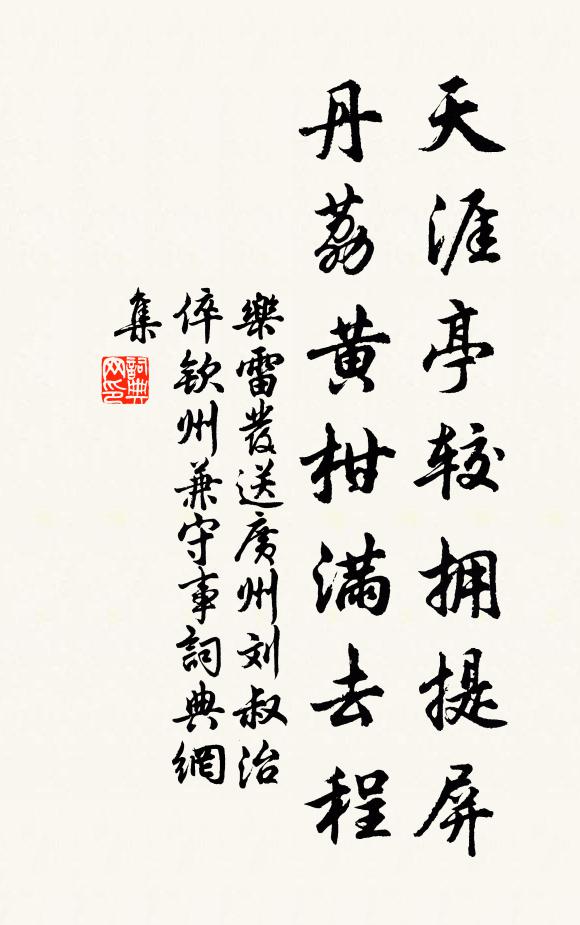 天涯亭较拥提屏
丹荔黄柑满去程
樂雷發送廣州刘叔治
倅欽州兼守事詞典網
集
詞典
网印